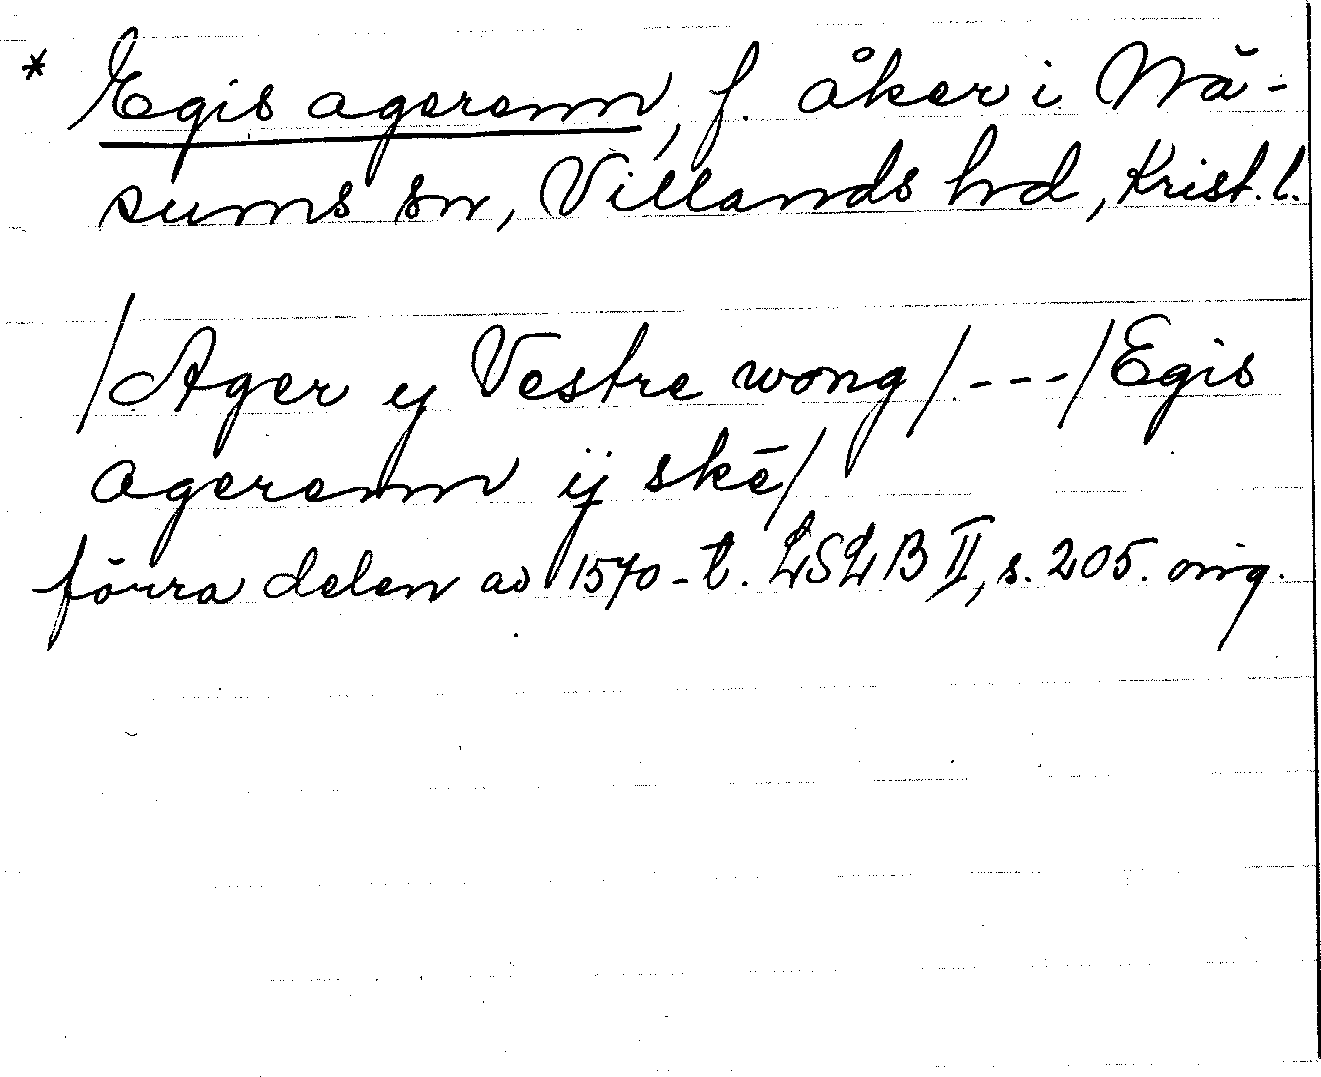 * Egis agerenn, f. åker i Nä-
sums sn, Villands hd, Krist. l.
/Ager y Vestre wong/ ---/Egis
agerenn ij skē/
förra delen av 1570-t. LSLB II, s. 205. orig.